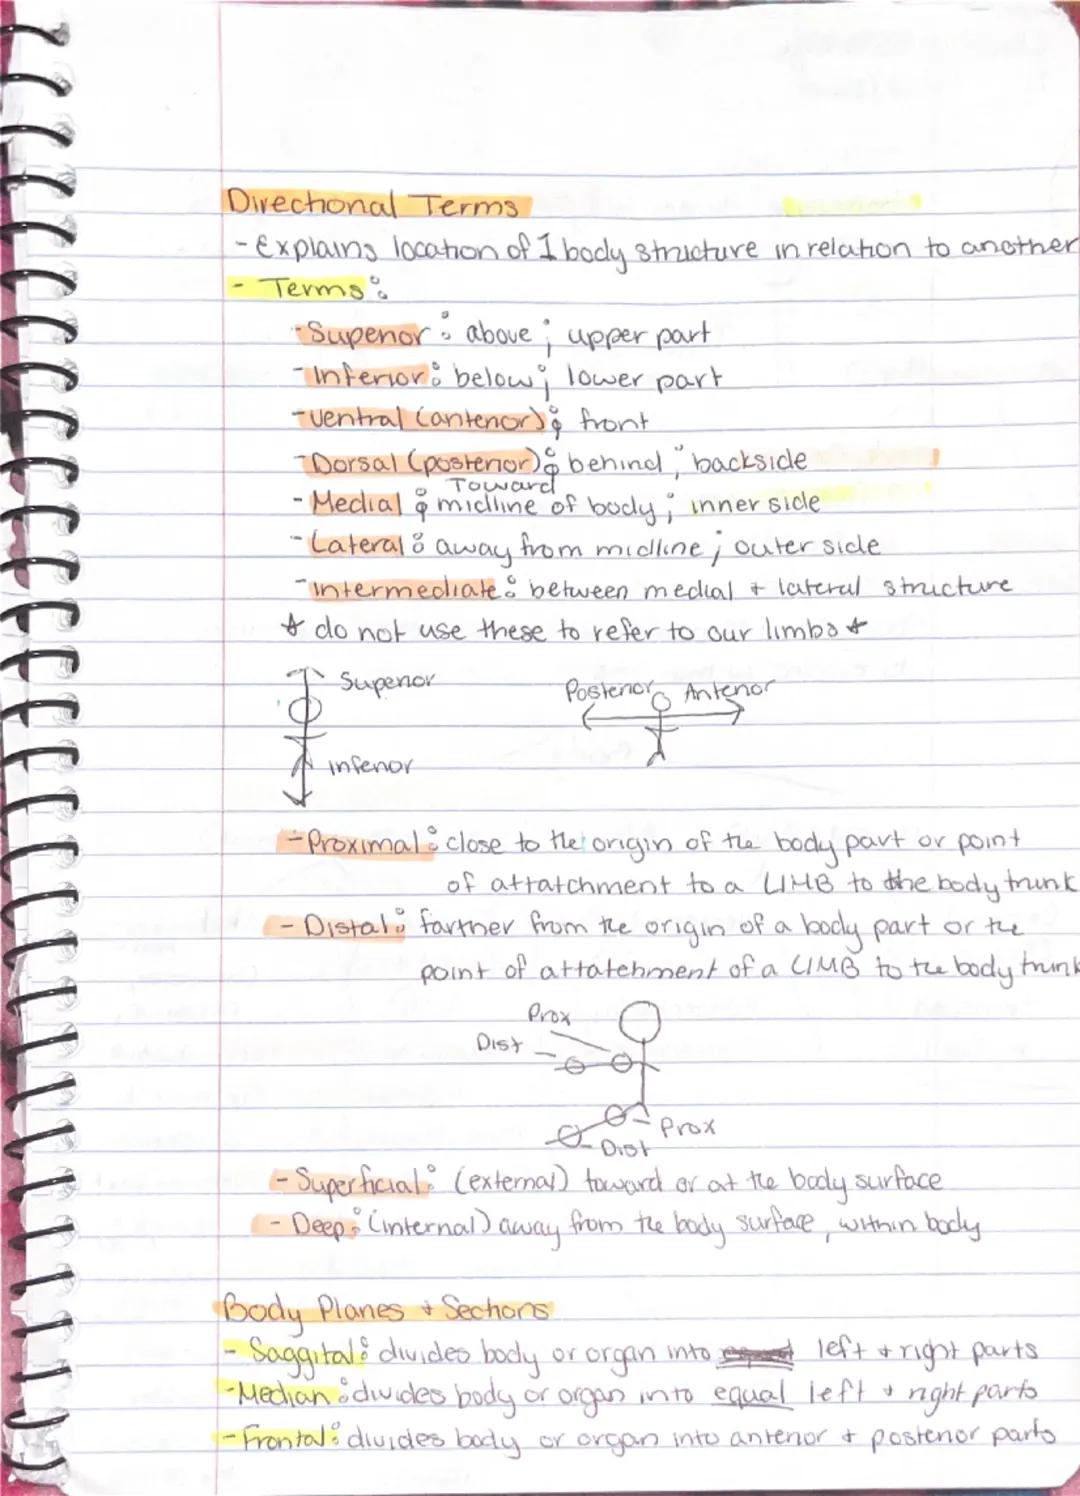 Directional Terms
- Explains location of 1 body structure in relation to another
- Terms:
- Superior: above; upper part
- Inferior: below; lower part
- Ventral (anterior): front
- Dorsal (posterior): behind; backside
Toward
- Medial: midline of body; inner side
- Lateral: away from midline; outer side
- Intermediate: between medial + lateral structure
* do not use these to refer to our limbs *
Superior
Posterior Anterior
Inferior
- Proximal: close to the origin of the body part or point
of attatchment to a LIMB to the body trunk
- Distal: farther from the origin of a body part or the
point of attatchment of a LIMB to the body trunk
Prox
Dist
Prox
Dist
- Superficial: (external) toward or at the body surface
- Deep: (internal) away from the body surface, within body
Body Planes + Sections
- Saggital: divides body or organ into left + right parts
- Median: divides body or organ into equal left + right parts
- Frontal: divides body or organ into anterior + posterior parts